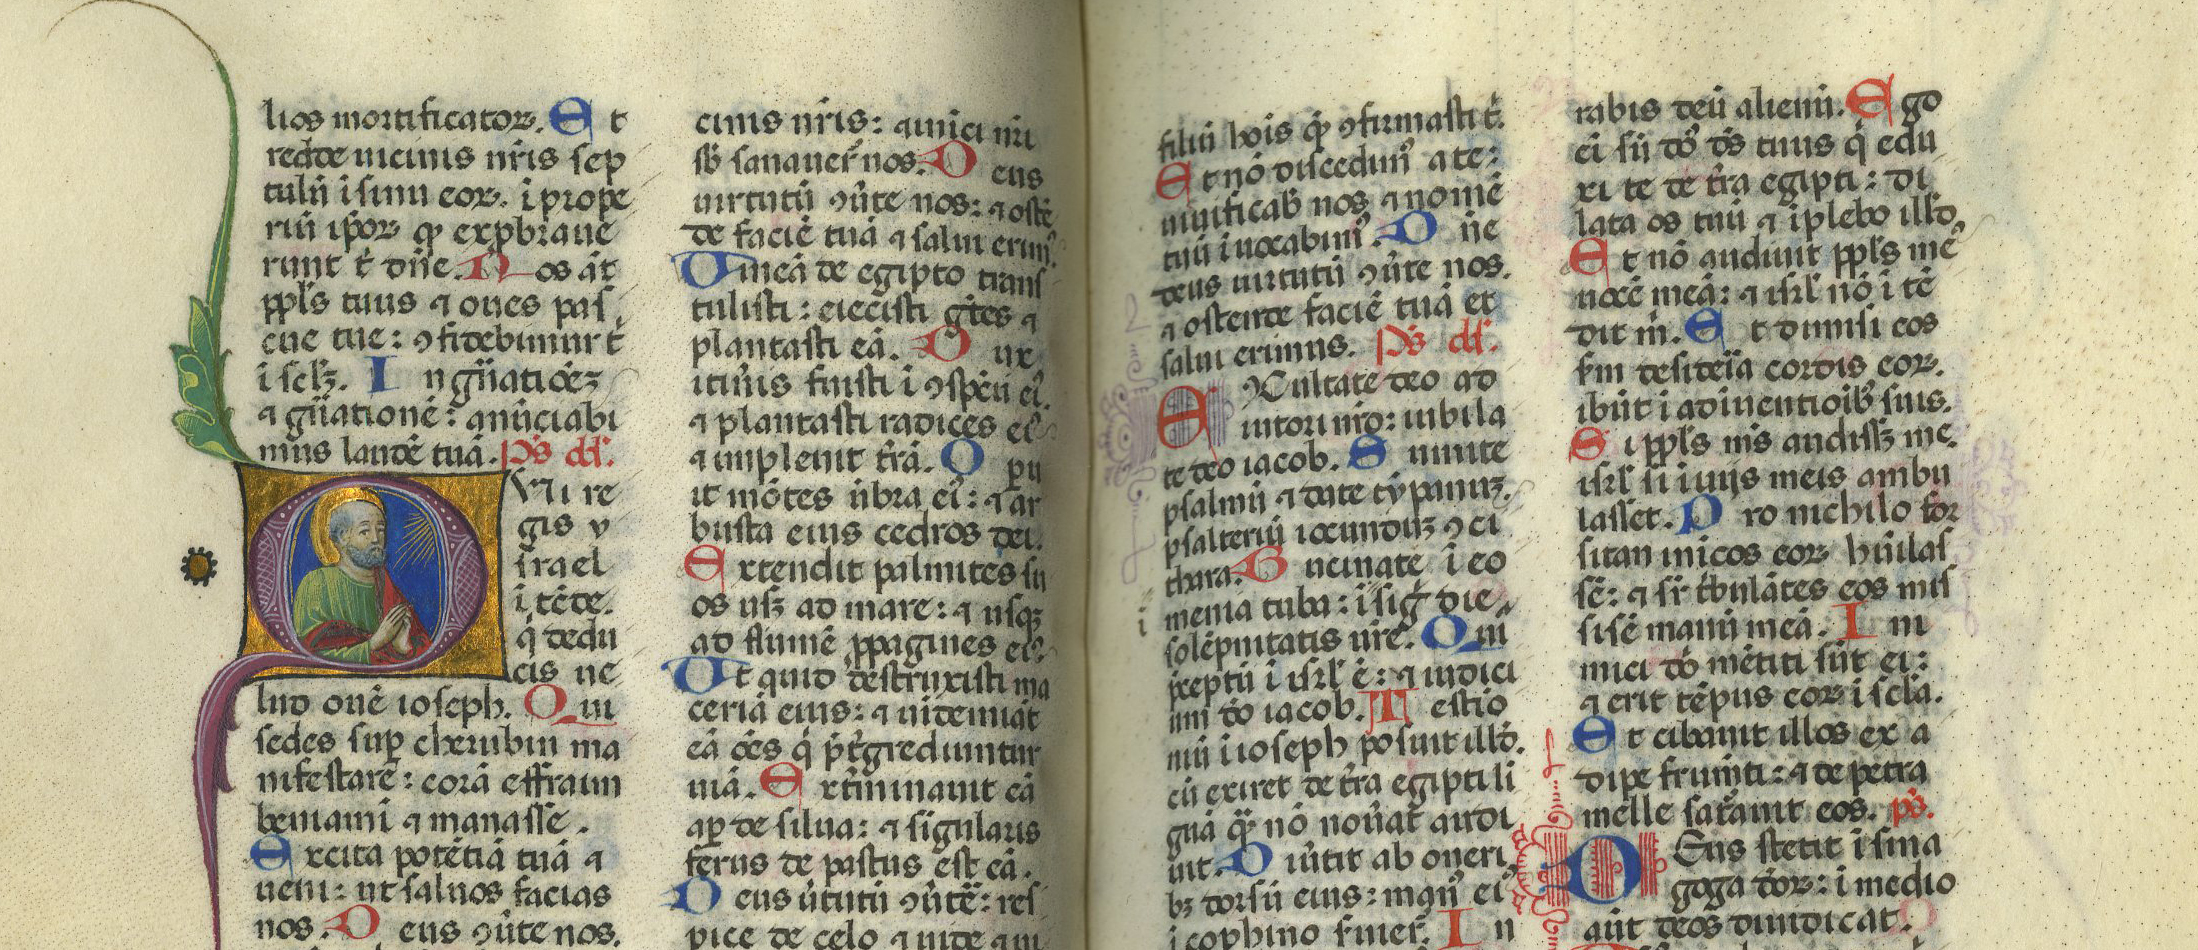 lios mortificatoꝝ. Et
redde uicinis nr̄is sep
tulū i sinu eoꝝ. i prope
riū ip̄oꝝ q̄ exp̱braue
runt t̄ dn̄e. Nos āt
ppl̄s tuus ⁊ oues pas
cue tue: ꝯfidebimur t̄
i scl̄ꝫ. In gn̄atiōeꝫ
⁊ gn̄ationē: anūciabi
mus laudē tuā. Ps̄ dd̄.
QVi re
gis y
srael
itēde.
q̄ dedu
cis ue
lud ouē ioseph. Qui
sedes sup̱ cherubin ma
nifestare: corā effraim
beniami ⁊ manasse.
Excita potētiā tuā ⁊
ueni: ut saluos facias
nos. Deus ꝯūte nos.
cinis nr̄is: ⁊ inīci nr̄i
sb̄ sanauer̄ nos. Deus
uirtutū ꝯūte nos: ⁊ ostē
de faciē tuā ⁊ salui erim᷒.
Uineā de egipto trans
tulisti: eiecisti gētes ⁊
plantasti eā. Dux
itin̄is fuisti i ꝯspc̄u ei᷒.
⁊ plantasti radices ei᷒
⁊ impleuit tr̄ā. Opu
it mōtes ūbra ei᷒: ⁊ ar
busta eius cedros dei.
Extendit palmites su
os usꝫ ad mare: ⁊ usqꝫ
ad flumē ꝓpagines ei᷒.
Ut quid destruxisti ma
ceriā eius: ⁊ uidemiāt
eā ōes q̄ p̄t̄grediuntur
uiā. Ext̄minauit eā
ap̱ de silua: ⁊ sigularis
ferus de pastus est eā.
Deus ūtutū ꝯūte: res
pice de celo ⁊ uide ⁊ ui
filiū hois q̄ ꝯfirmasti t̄.
Et nō discedim᷒ a te:
uiuificab̄ nos ⁊ nomē
tuū iuocabim᷒. Dn̄e
deus uirtutū ꝯūte nos.
⁊ ostende faciē tuā et
salui erimus. Ps̄ dd̄.
EXultate deo ad
iutori nr̄o: iubila
te deo iacob. Sumite
psalmū ⁊ date tȳpanuꝫ.
psalteriū iocunduꝫ ꝯ ci
thara. Bucinate i eo
menia tuba: i sig̅ die
solēpnitatis ur̄e. Qui
p̄ceptū i isrl̄ ē: ⁊ iudici
um dō iacob. Testio
niū i ioseph posuit illd̄.
cū exiret de tr̄a egipti li
guā q̄ nō nou̅at audi
uit. Diūtit ab oneri
bꝫ dorsū eius: man᷒ ei᷒
i cophino s̄uier̄. In
rabis deū alienū. Ego
ei sū dō d̄s tuus q̄ edu
xi te de tr̄a egipti: di
lata os tuū ⁊ iplebo illd̄.
Et nō audiuit ppl̄s me᷒
uocē meā: ⁊ isrl̄ nō itē
dit m̄. Et dimisi eos
s̄m desideīa cordis eoꝝ.
ibūt i adinentioib᷒ suis.
Si ppl̄s m̄s audissꝫ me.
isrl̄ si i uijs meis ambu
lasset. Pro nichilo for
sitan inicos eoꝝ hūilas
sē: ⁊ sr̄ tb̄ulātes eos mis
sisē manū meā. Ini
mici dō mētiti sūt ei:
⁊ erit tēpus eoꝝ i scl̄a.
Et cibauit illos ex a
dipe frum̄ti: ⁊ de petra
melle sat̄auit eos. ps̄.
DEus stetit i sina
goga d̄oꝝ: i medio
aūt deos diiudicat.